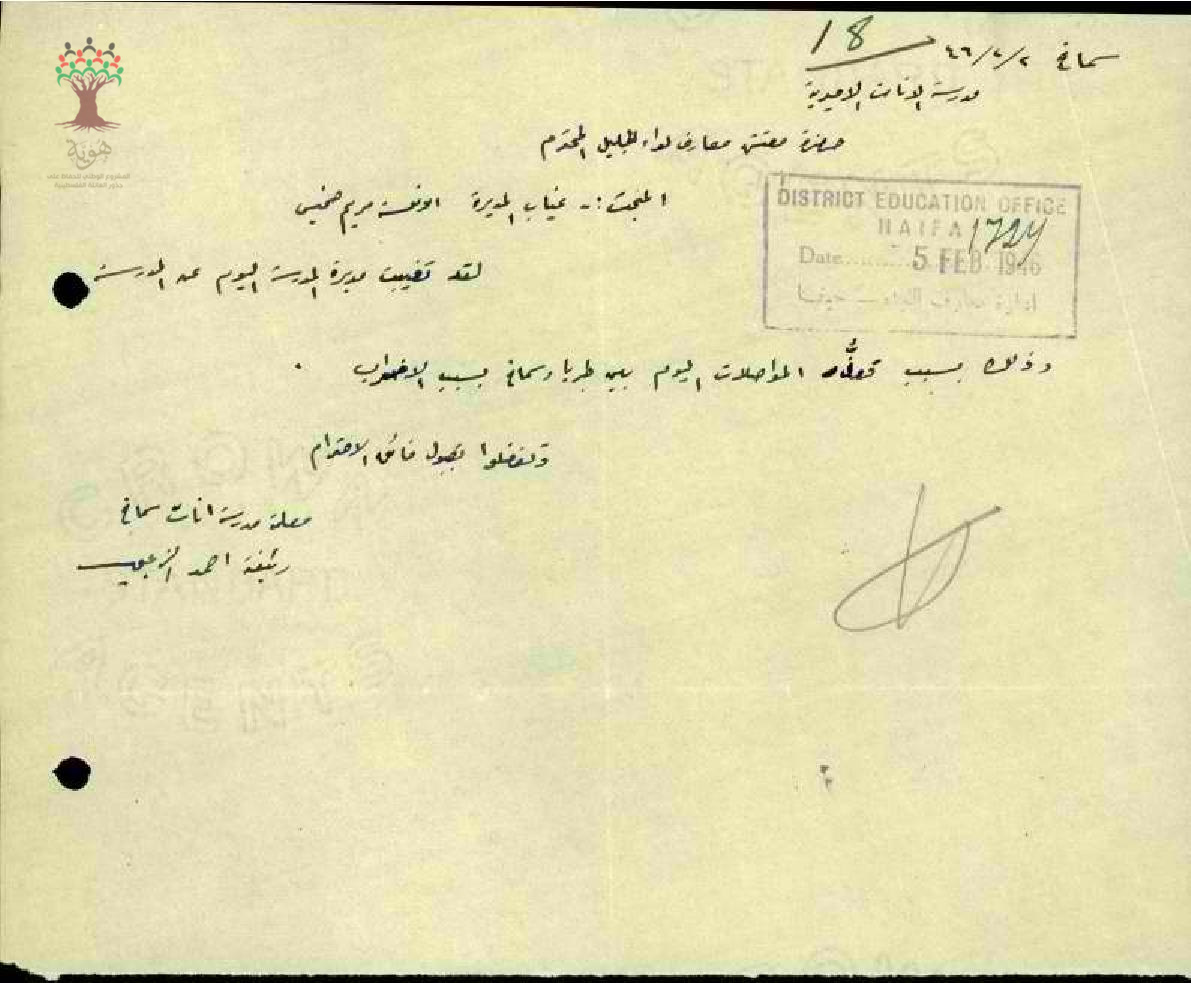 سمخ ٤٦/٢/٢
18
مدرسة الاناث الاميرية
حضرة مفتش معارف لواء الجليل المحترم
المبحث :- غياب المديرة الانسة مريم
لقد تغيبت مديرة المدرسة اليوم عن المدرسة
وذلك بسبب تعطُّل المواصلات اليوم بين طبريا وسمخ بسبب الاضراب .
وتفضلوا بقبول فائق الاحترام
معلمة مدرسة اناث سمخ
رئيفة احمد الزعبي
DISTRICT EDUCATION OFFICE
HAIFA
1724
Date 5 FEB 1946
ادارة معارف اللواء – حيفا
هوية
المشروع الوطني للحفاظ على
جذور العائلة الفلسطينية